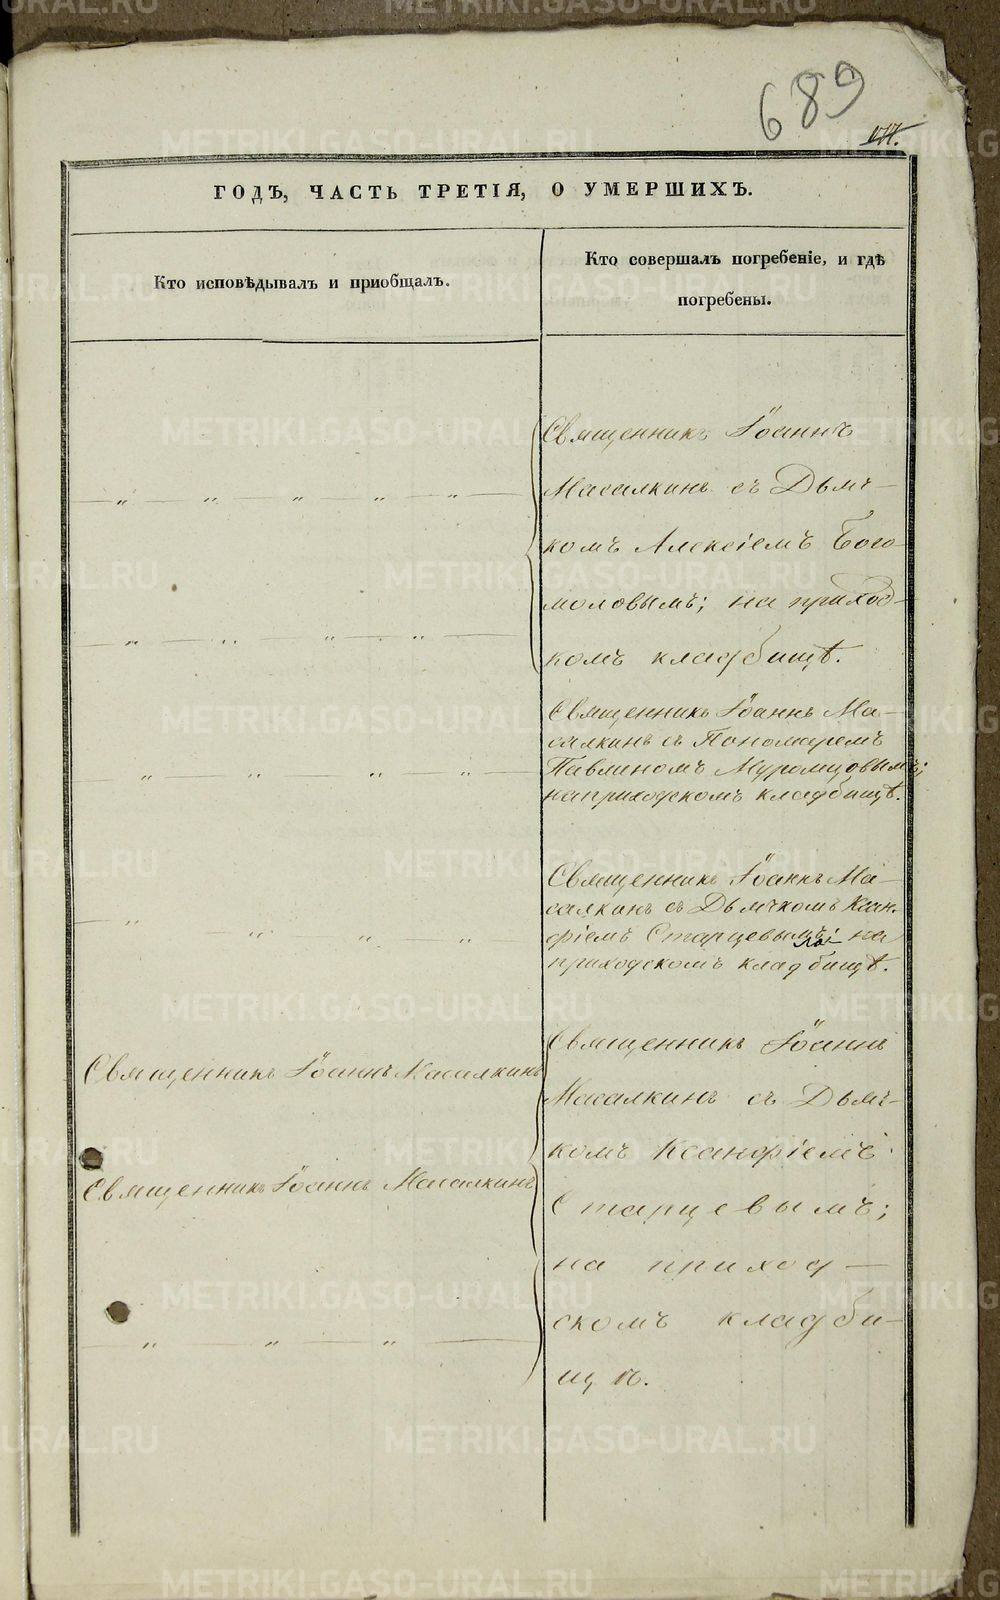 689
177.
ГОДЪ, ЧАСТЬ ТРЕТІЯ, О УМЕРШИХЪ.
Кто исповѣдывалъ и пріобщалъ.
Кто совершалъ погребеніе, и гдѣ
погребены.
Священникъ Іоаннъ
Масалкинъ съ Дьяч-
комъ Алексіемъ Бого-
моловымъ; на приход-
комъ кладбищѣ.
Священникъ Іоаннъ Ма-
салкинъ съ Пономаремъ
Павлиномъ Муромцовымъ;
на приходскомъ кладбищѣ.
Священникъ Іоаннъ Ма-
салкинъ съ Дьячкомъ Ксан-
фіемъ Старцевымъ; на
приходскомъ кладбищѣ.
Священникъ Іоаннъ Масалкинъ
Священникъ Іоаннъ Масалкинъ
Священникъ Іоаннъ
Масалкинъ съ Дьяч-
комъ Ксанфіемъ
Старцевымъ;
на приход-
скомъ кладби-
щѣ.
METRIKI.GASO-URAL.RU